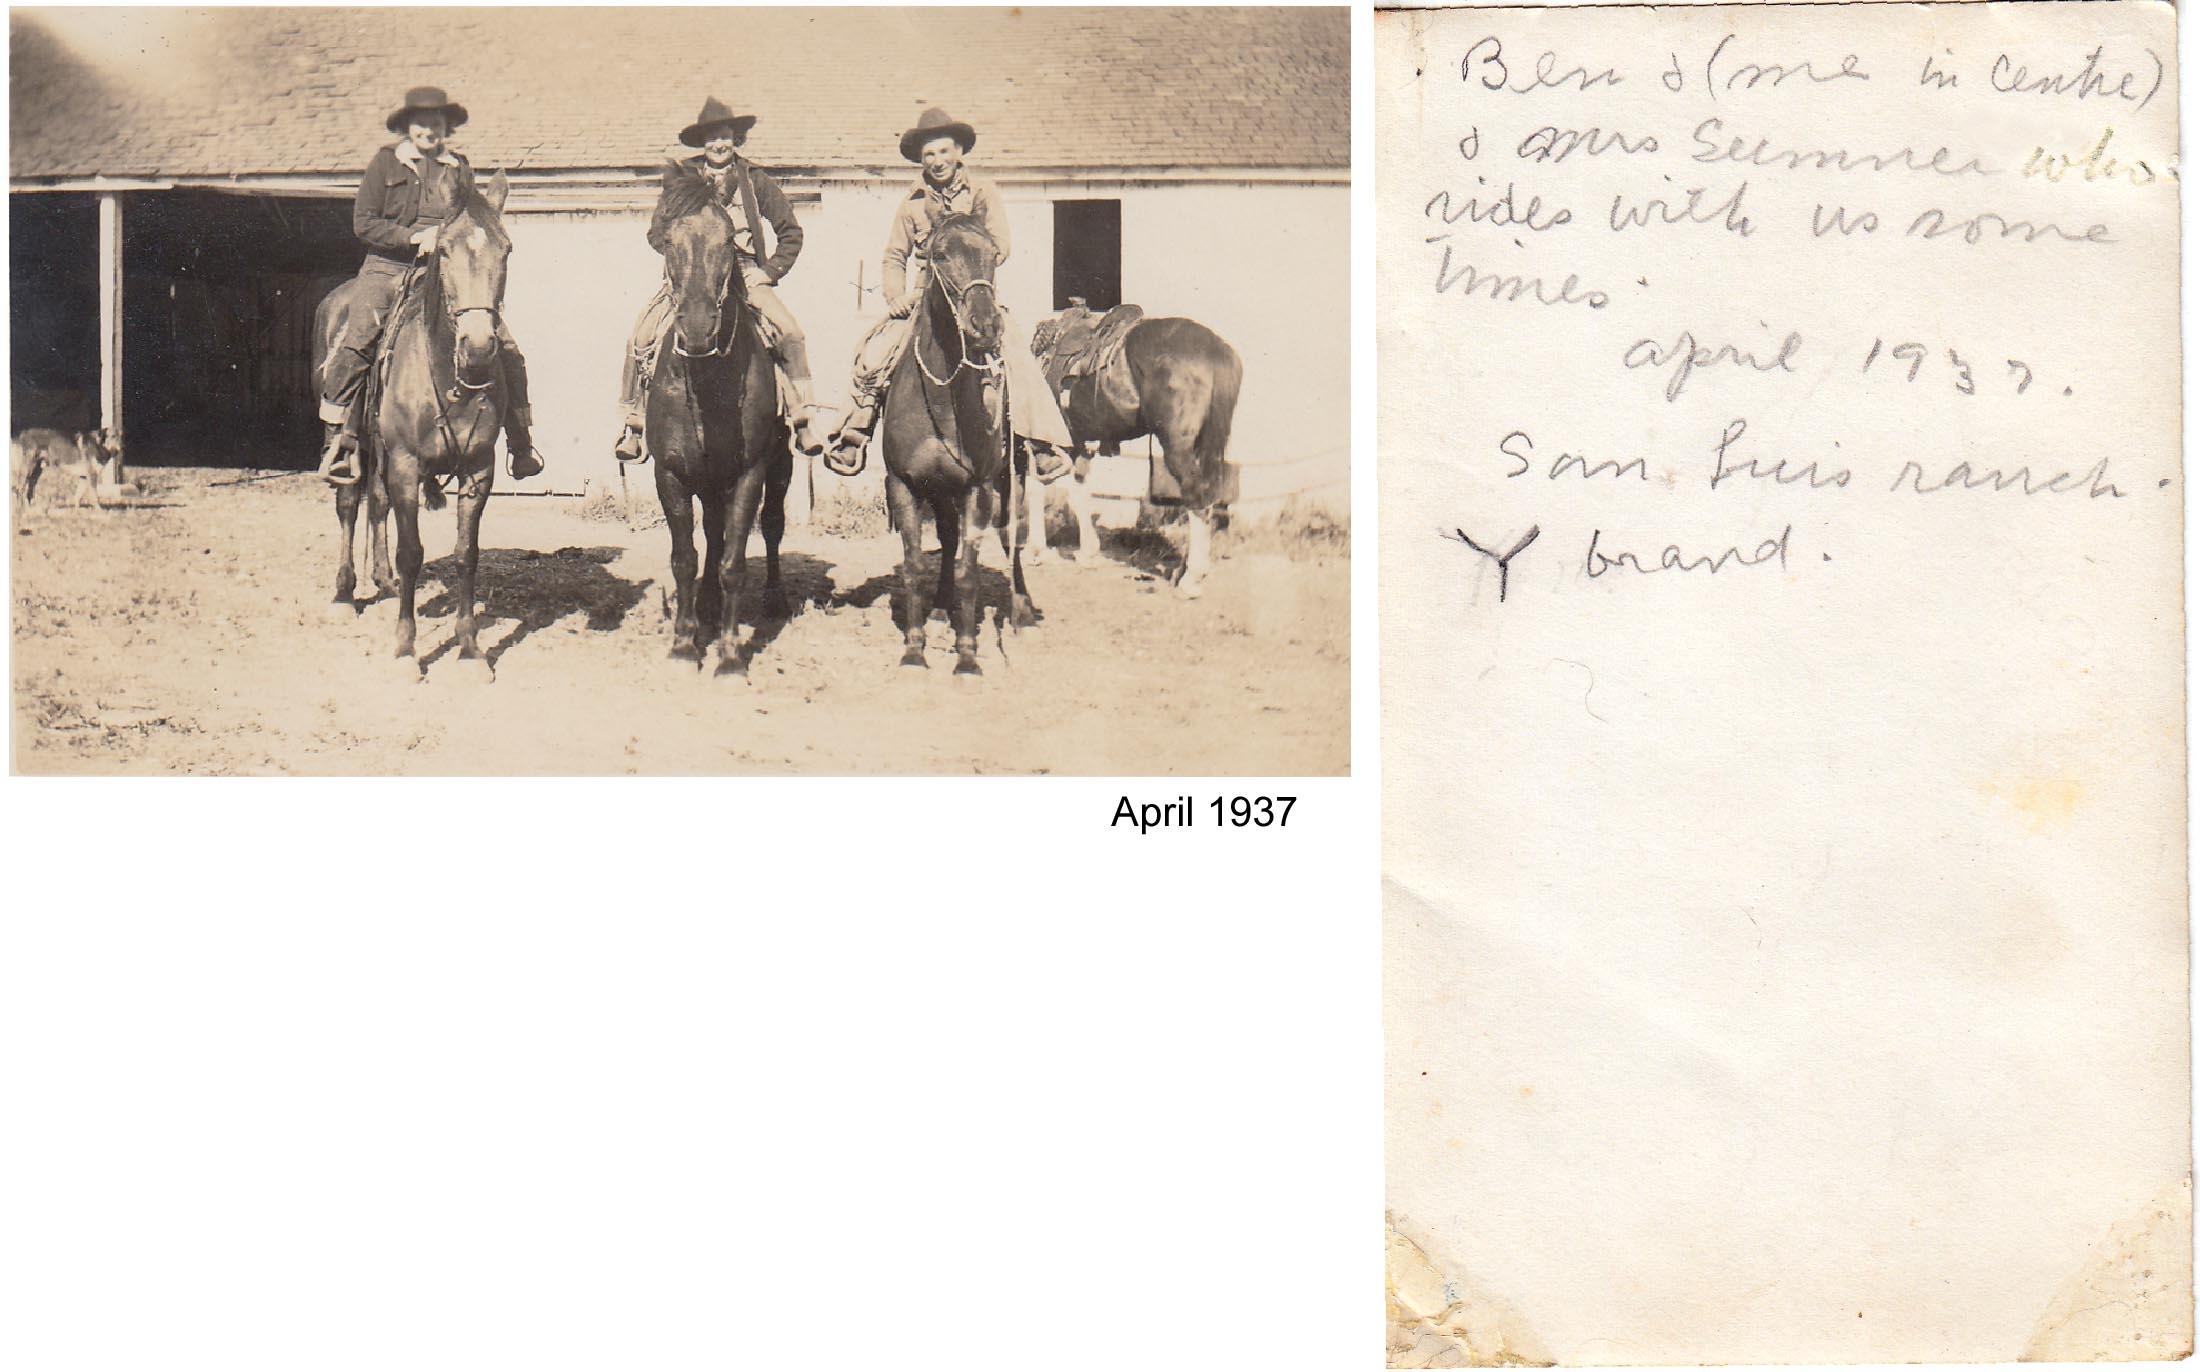 April 1937
Ben & (me in centre)
& Mrs Sumner who
rides with us some
times.
april 1937.
San Luis ranch.
Y brand.